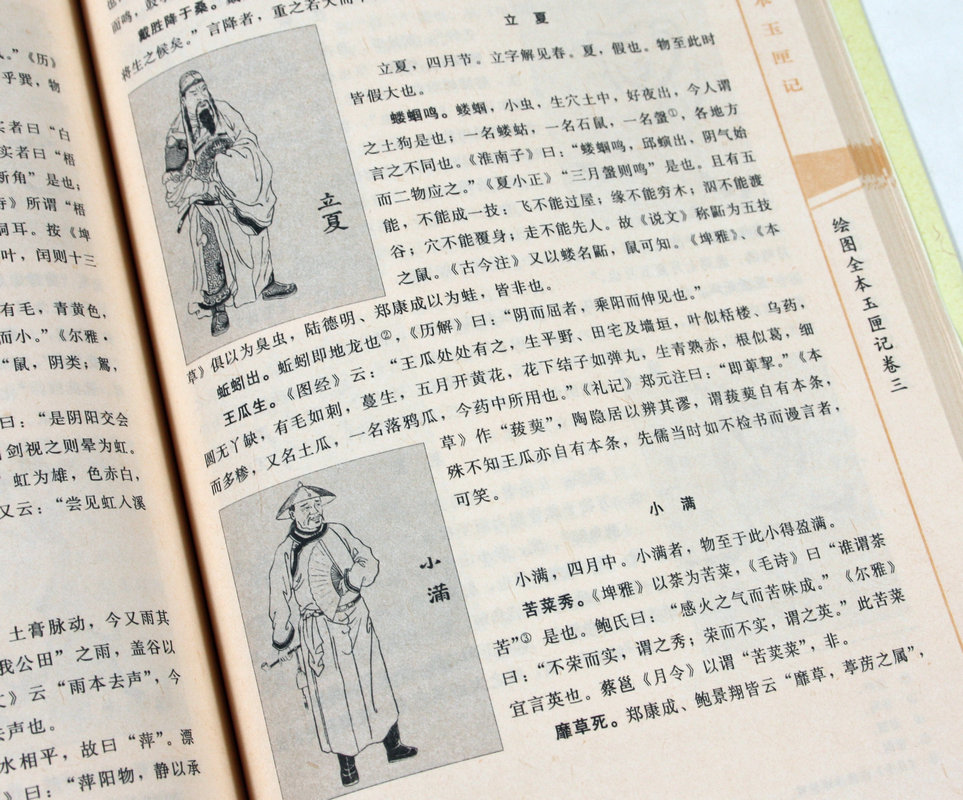 。”《历》
乎巽，物
实者曰“白
实者曰“梧
斩角”是也；
所谓“梧
同耳。按《埤
叶，闰则十三
有毛，青黄色，
而小。”《尔雅·
“鼠，阴类；鴽，
曰：“是阴阳交会
剑视之则晕为虹。
虹为雄，色赤白，
又云：“尝见虹入溪
土膏脉动，今又雨其
我公田”之雨，盖谷以
》云“雨本去声”，今
去声也。
水相平，故曰“萍”。漂
》曰：“萍阳物，静以承
而鸣，
戴胜降于桑。
将生之候矣。”言降者，重之若天而
立夏
立夏，四月节。立字解见春。夏，假也。物至此时
皆假大也。
蝼蝈鸣。蝼蝈，小虫，生穴土中，好夜出，今人谓
之土狗是也；一名蝼蛄，一名石鼠，一名螜①，各地方
言之不同也。《淮南子》曰：“蝼蝈鸣，邱螾出，阴气始
而二物应之。”《夏小正》“三月螜则鸣”是也。且有五
能，不能成一技：飞不能过屋；缘不能穷木；泅不能渡
谷；穴不能覆身；走不能先人。故《说文》称鼫为五技
之鼠。《古今注》又以蝼名鼫，鼠可知。《埤雅》、《本
草》俱以为臭虫，陆德明、郑康成以为蛙，皆非也。
蚯蚓出。蚯蚓即地龙也②，《历解》曰：“阴而屈者，乘阳而伸见也。”
王瓜生。《图经》云：“王瓜处处有之，生平野、田宅及墙垣，叶似栝楼、乌药，
圆无丫缺，有毛如刺，蔓生，五月开黄花，花下结子如弹丸，生青熟赤，根似葛，细
而多糁，又名土瓜，一名落鸦瓜，今药中所用也。”《礼记》郑元注曰：“即萆挈。”《本
草》作“菝葜”，陶隐居以辨其谬，谓菝葜自有本条，
殊不知王瓜亦自有本条，先儒当时如不检书而谩言者，
可笑。
立夏
小满
小满，四月中。小满者，物至于此小得盈满。
苦菜秀。《埤雅》以荼为苦菜，《毛诗》曰“谁谓荼
苦”③是也。鲍氏曰：“感火之气而苦味成。”《尔雅》
曰：“不荣而实，谓之秀；荣而不实，谓之英。”此苦菜
宜言英也。蔡邕《月令》以谓“苦荬菜”，非。
靡草死。郑康成、鲍景翔皆云“靡草，葶苈之属”，
小满
本玉匣记
绘图全本玉匣记卷三